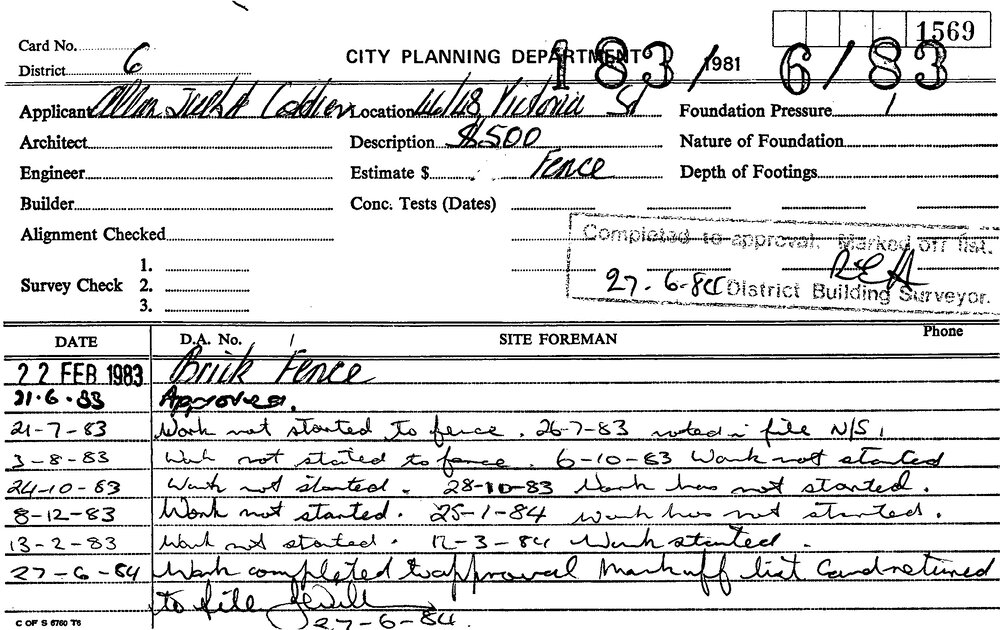 1569
Card No. CITY PLANNING DEPARTMENT 183/1981 6/83
District 6
Applicant Allan Jack & Location 46/48 Victoria St Foundation Pressure
Architect Description $500 Nature of Foundation
Engineer Estimate $ Fence Depth of Footings
Builder Conc. Tests (Dates)
Alignment Checked Completed to approval. Marked off list.
1.
Survey Check 2. 27-6-84 District Building Surveyor.
3.
DATE D.A. No. SITE FOREMAN Phone
22 FEB 1983 Brick Fence
21.6.83 Approved.
21-7-83 Work not started to fence. 26-7-83 noted in file N/S
3-8-83 Work not stated to fence. 6-10-83 Work not started
24-10-83 Work not started. 28-10-83 Work has not started.
8-12-83 Work not started. 25-1-84 Work has not started.
13-2-83 Work not started. 12-3-84 Work started.
27-6-84 Work completed to approval Mark off list Card returned
to file
27-6-84.
C OF S 6760 T6